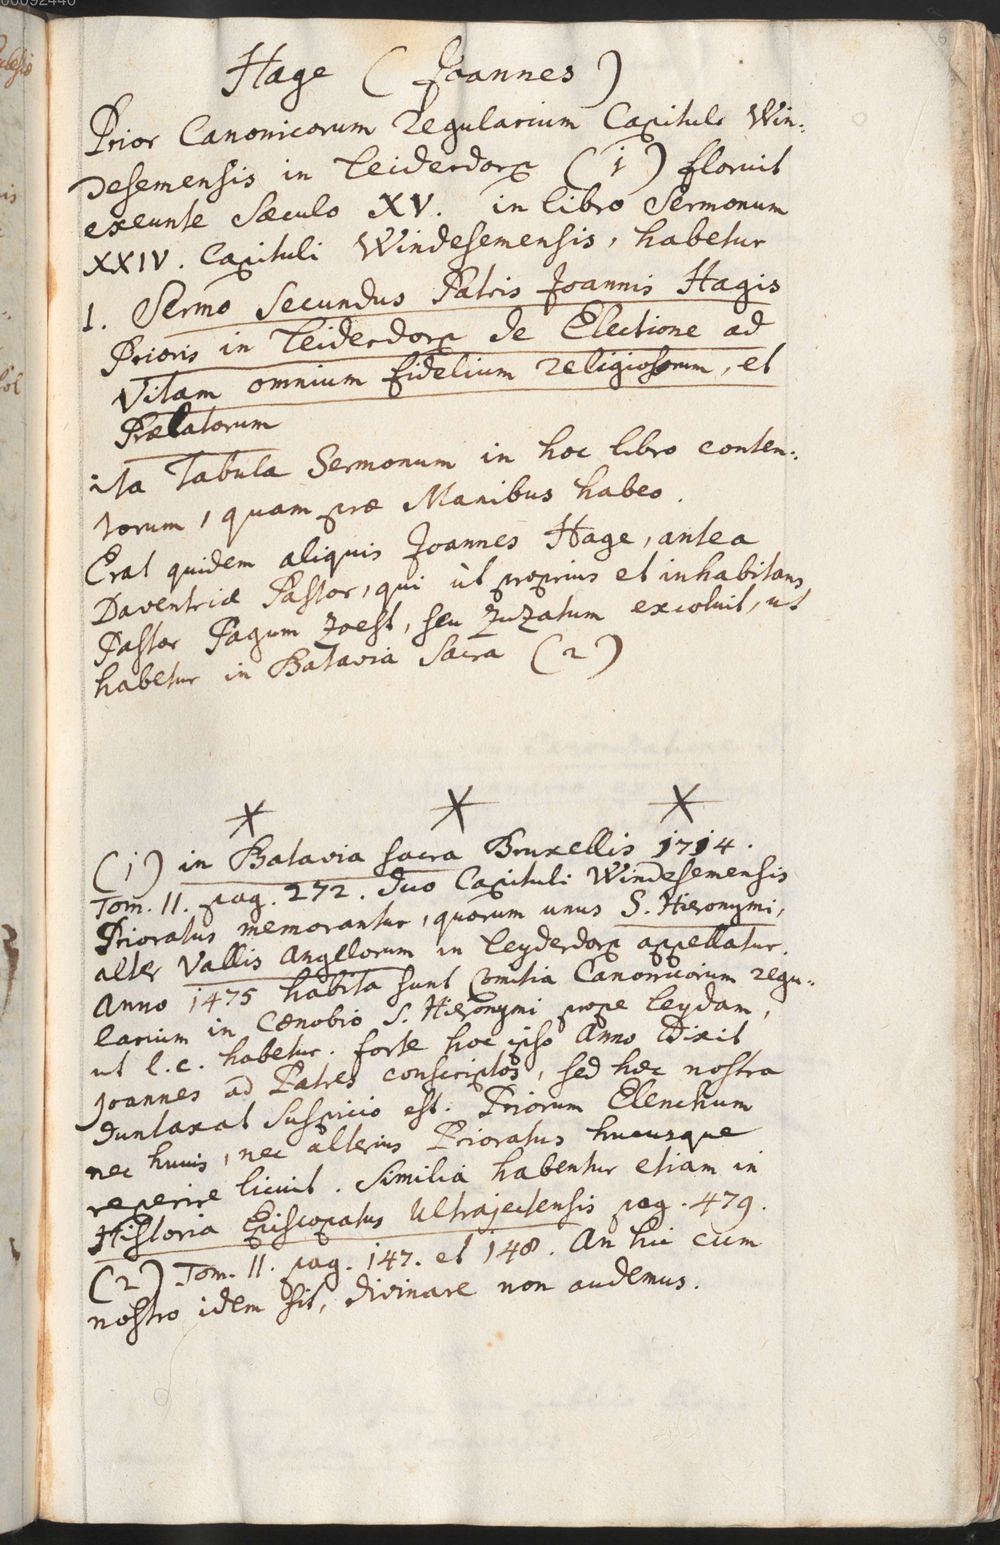 Hage ( Joannes )
Prior Canonicorum Regularium Capituli Win:
desemensis in Leiderdorp ( 1 ) floruit
exeunte Sæculo XV. in libro Sermonum
XXIV. Capituli Windesemensis, habetur
1. Sermo Secundus Patris Joannis Hagis
Prioris in Leiderdorp de Electione ad
Vitam omnium fidelium religiosorum, et
Prælatorum
ita Tabula Sermonum in hoc libro conten:
torum, quam præ Manibus habeo.
Erat quidem aliquis Joannes Hage, antea
Daventriæ Pastor, qui ùt proprius et inhabitans
Pastor Pagum Zoest, seu Zuzatum excoluit, ut
habetur in Batavia Sacra ( 2 )
(1) in Batavia sacra Bruxellis 1714.
Tom. II. pag. 272. duo Capituli Windesemensis
Prioratus memorantur, quorum unus S. Hieronymi,
alter Vallis Angellorum in Leyderdorp appellatur.
Anno 1475 habita sunt Comitia Canonicorum regu:
larium in Cœnobio S. Hieronymi prope Leydam,
ut l.c. habetur. forte hoc ipso Anno dixit
Joannes ad Patres conscriptos, sed hæc nostra
duntaxat Suspicio est. Priorum Elenchum
nec huius, nec alterius Prioratus hucusque
reperire licuit. Similia habentur etiam in
Historia Episcopatus Ultrajectensis pag. 479.
(2) Tom. II. pag. 147. et 148. An hic cum
nostro idem sit, divinare non audemus.